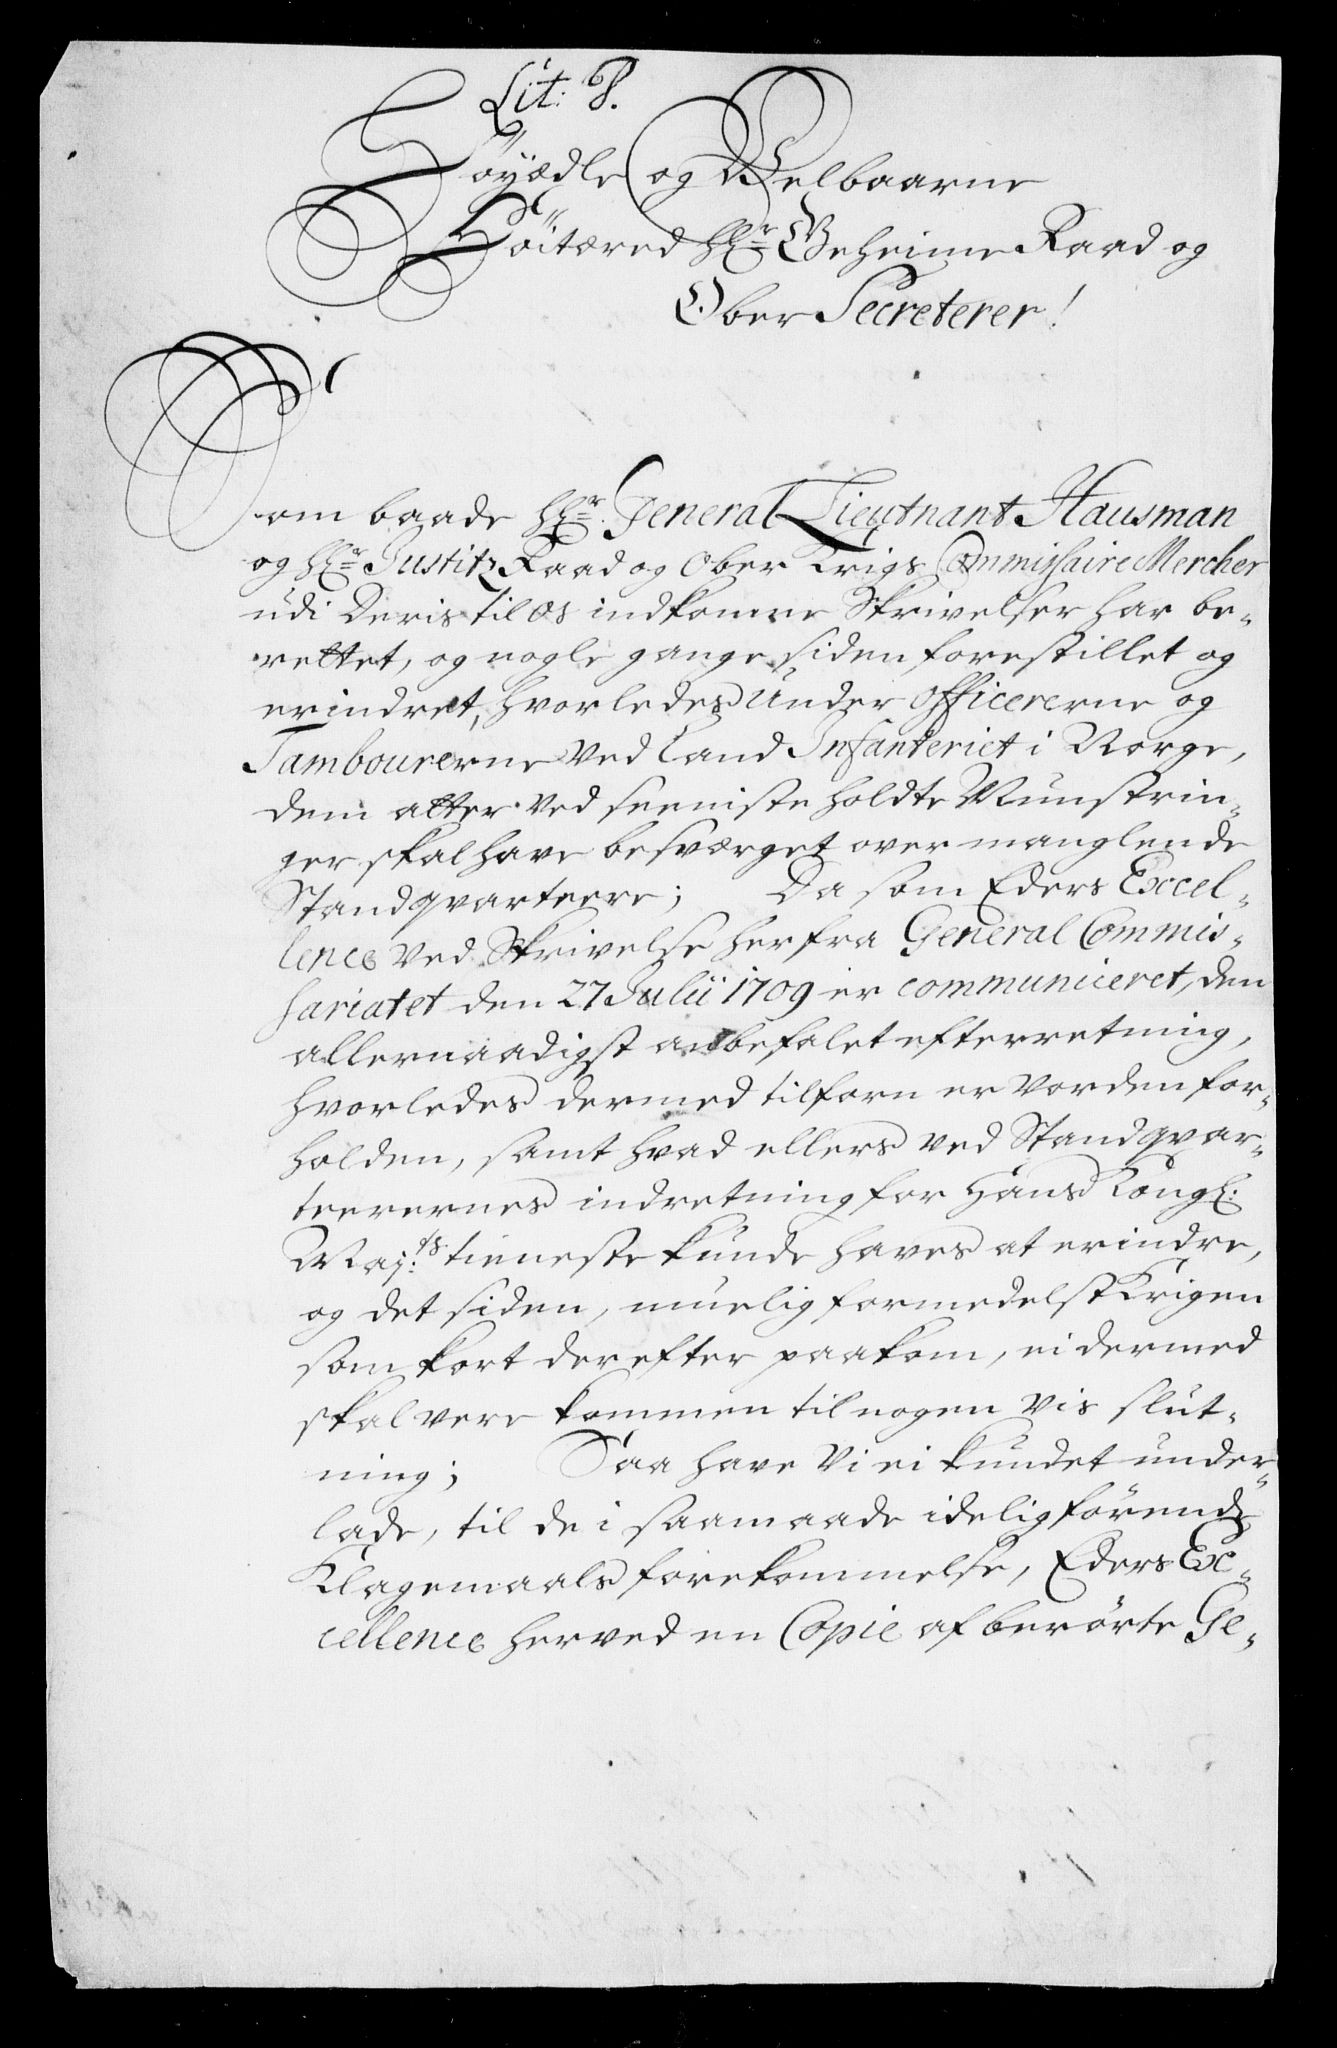 Lit: P.
Høyædle og Velbaarne
Höitærede Hr Geheime Raad og
Ober Secreterer!
Som baade Hr: General Lieutnant Hausman
og Hr Justitz Raad og Ober Krigs Commissaire Mercher
udi Deris til os indkomne Skrivelser har be-
rettet, og nogle gange siden forestillet og
erindret, hvorledes Under Officererne og
Tambourerne ved Land Infanteriet i Norge,
dem atter ved seeniste holdte Munstrin-
ger skal have besværget over manglende
Standqvarteere; Da som Eders Excel-
lence ved Skrivelse her fra General Commis-
sariatet den 27 Julii 1709 er communiceret, den
allernaadigst anbefalet efterretning,
hvorledes dermed tilforn er vorden for-
holden, samt hvad ellers ved Standqvar-
teerernes indretning for Hans Kongl:
Maj:ts tieneste kunde haves at erindre,
og det siden, muelig formedelst Krigen
som kort derefter paakom, ei dermed
skal vere kommen til nogen vis slut-
ning; Saa have Vi ei kundet under-
lade, til de i saamaade idelig förende
Klagemaals forekommelse, Eders Ex-
cellence herved en Copie af berörte Ge-